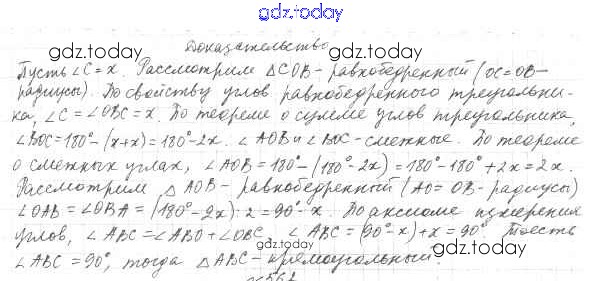 gdz.today
Доказательство
gdz.today gdz.today
Пусть ∠C = x. Рассмотрим △COB - равнобедренный (OC = OB -
радиусы). По свойству углов равнобедренного треугольни-
ка, ∠C = ∠OBC = x. По теореме о сумме углов треугольника,
∠BOC = 180° - (x + x) = 180° - 2x. ∠AOB и ∠BOC - смежные. По теореме
о смежных углах, ∠AOB = 180° - (180° - 2x) = 180° - 180° + 2x = 2x.
gdz.today gdz.today
Рассмотрим △AOB - равнобедренный (AO = OB - радиусы)
∠OAB = ∠OBA = (180° - 2x) : 2 = 90° - x. По аксиоме измерения
углов, ∠ABC = ∠ABO + ∠OBC. ∠ABC = (90° - x) + x = 90°. То есть
gdz.today
∠ABC = 90°, тогда △ABC - прямоугольный.
gdz.today